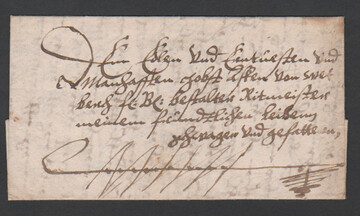 Dem Edlen Vnd Ernuesten Vnd
Manhafften Jobst Asken von
bestalter Ritmeister
meinem freundtlichen lieben
schwager Vnd gefattern